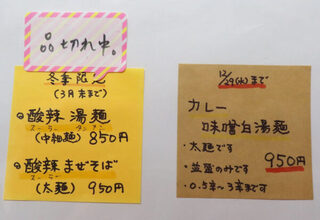 品切れ中。
冬季限定
(3月末まで)
酸辣湯麺
スーラータンメン
(中細麺) 850円
酸辣まぜそば
スーラー
(太麺) 950円
12/29(水)まで
カレー
味噌白湯麺
・太麺です 950円
・並盛のみです
・0.5辛〜3辛までです